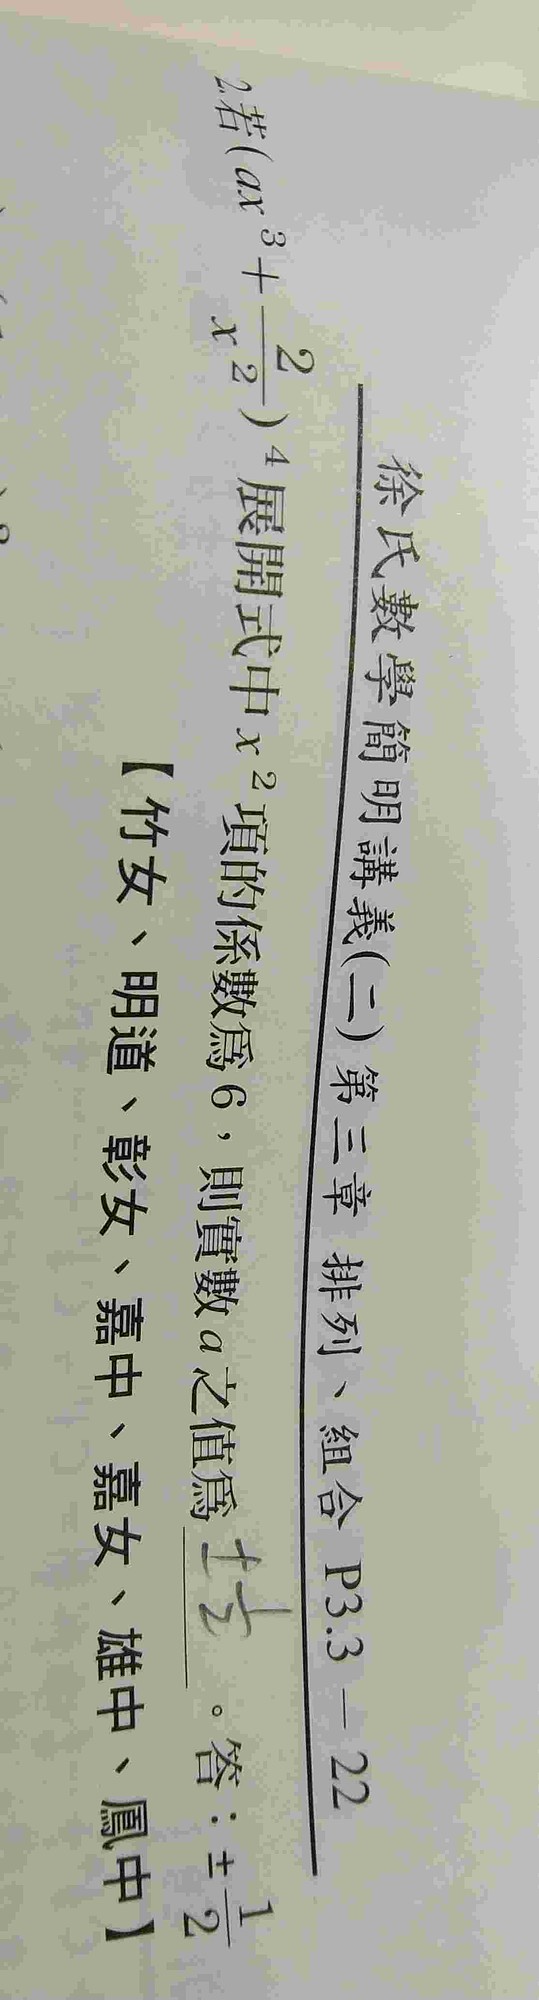 徐氏數學簡明講義(二)第三章 排列、組合 P3.3－22
2.若(ax³+2/x²)⁴展開式中x²項的係數爲6，則實數a之值爲 ±1/2 。答：±1/2
【竹女、明道、彰女、嘉中、嘉女、雄中、鳳中】